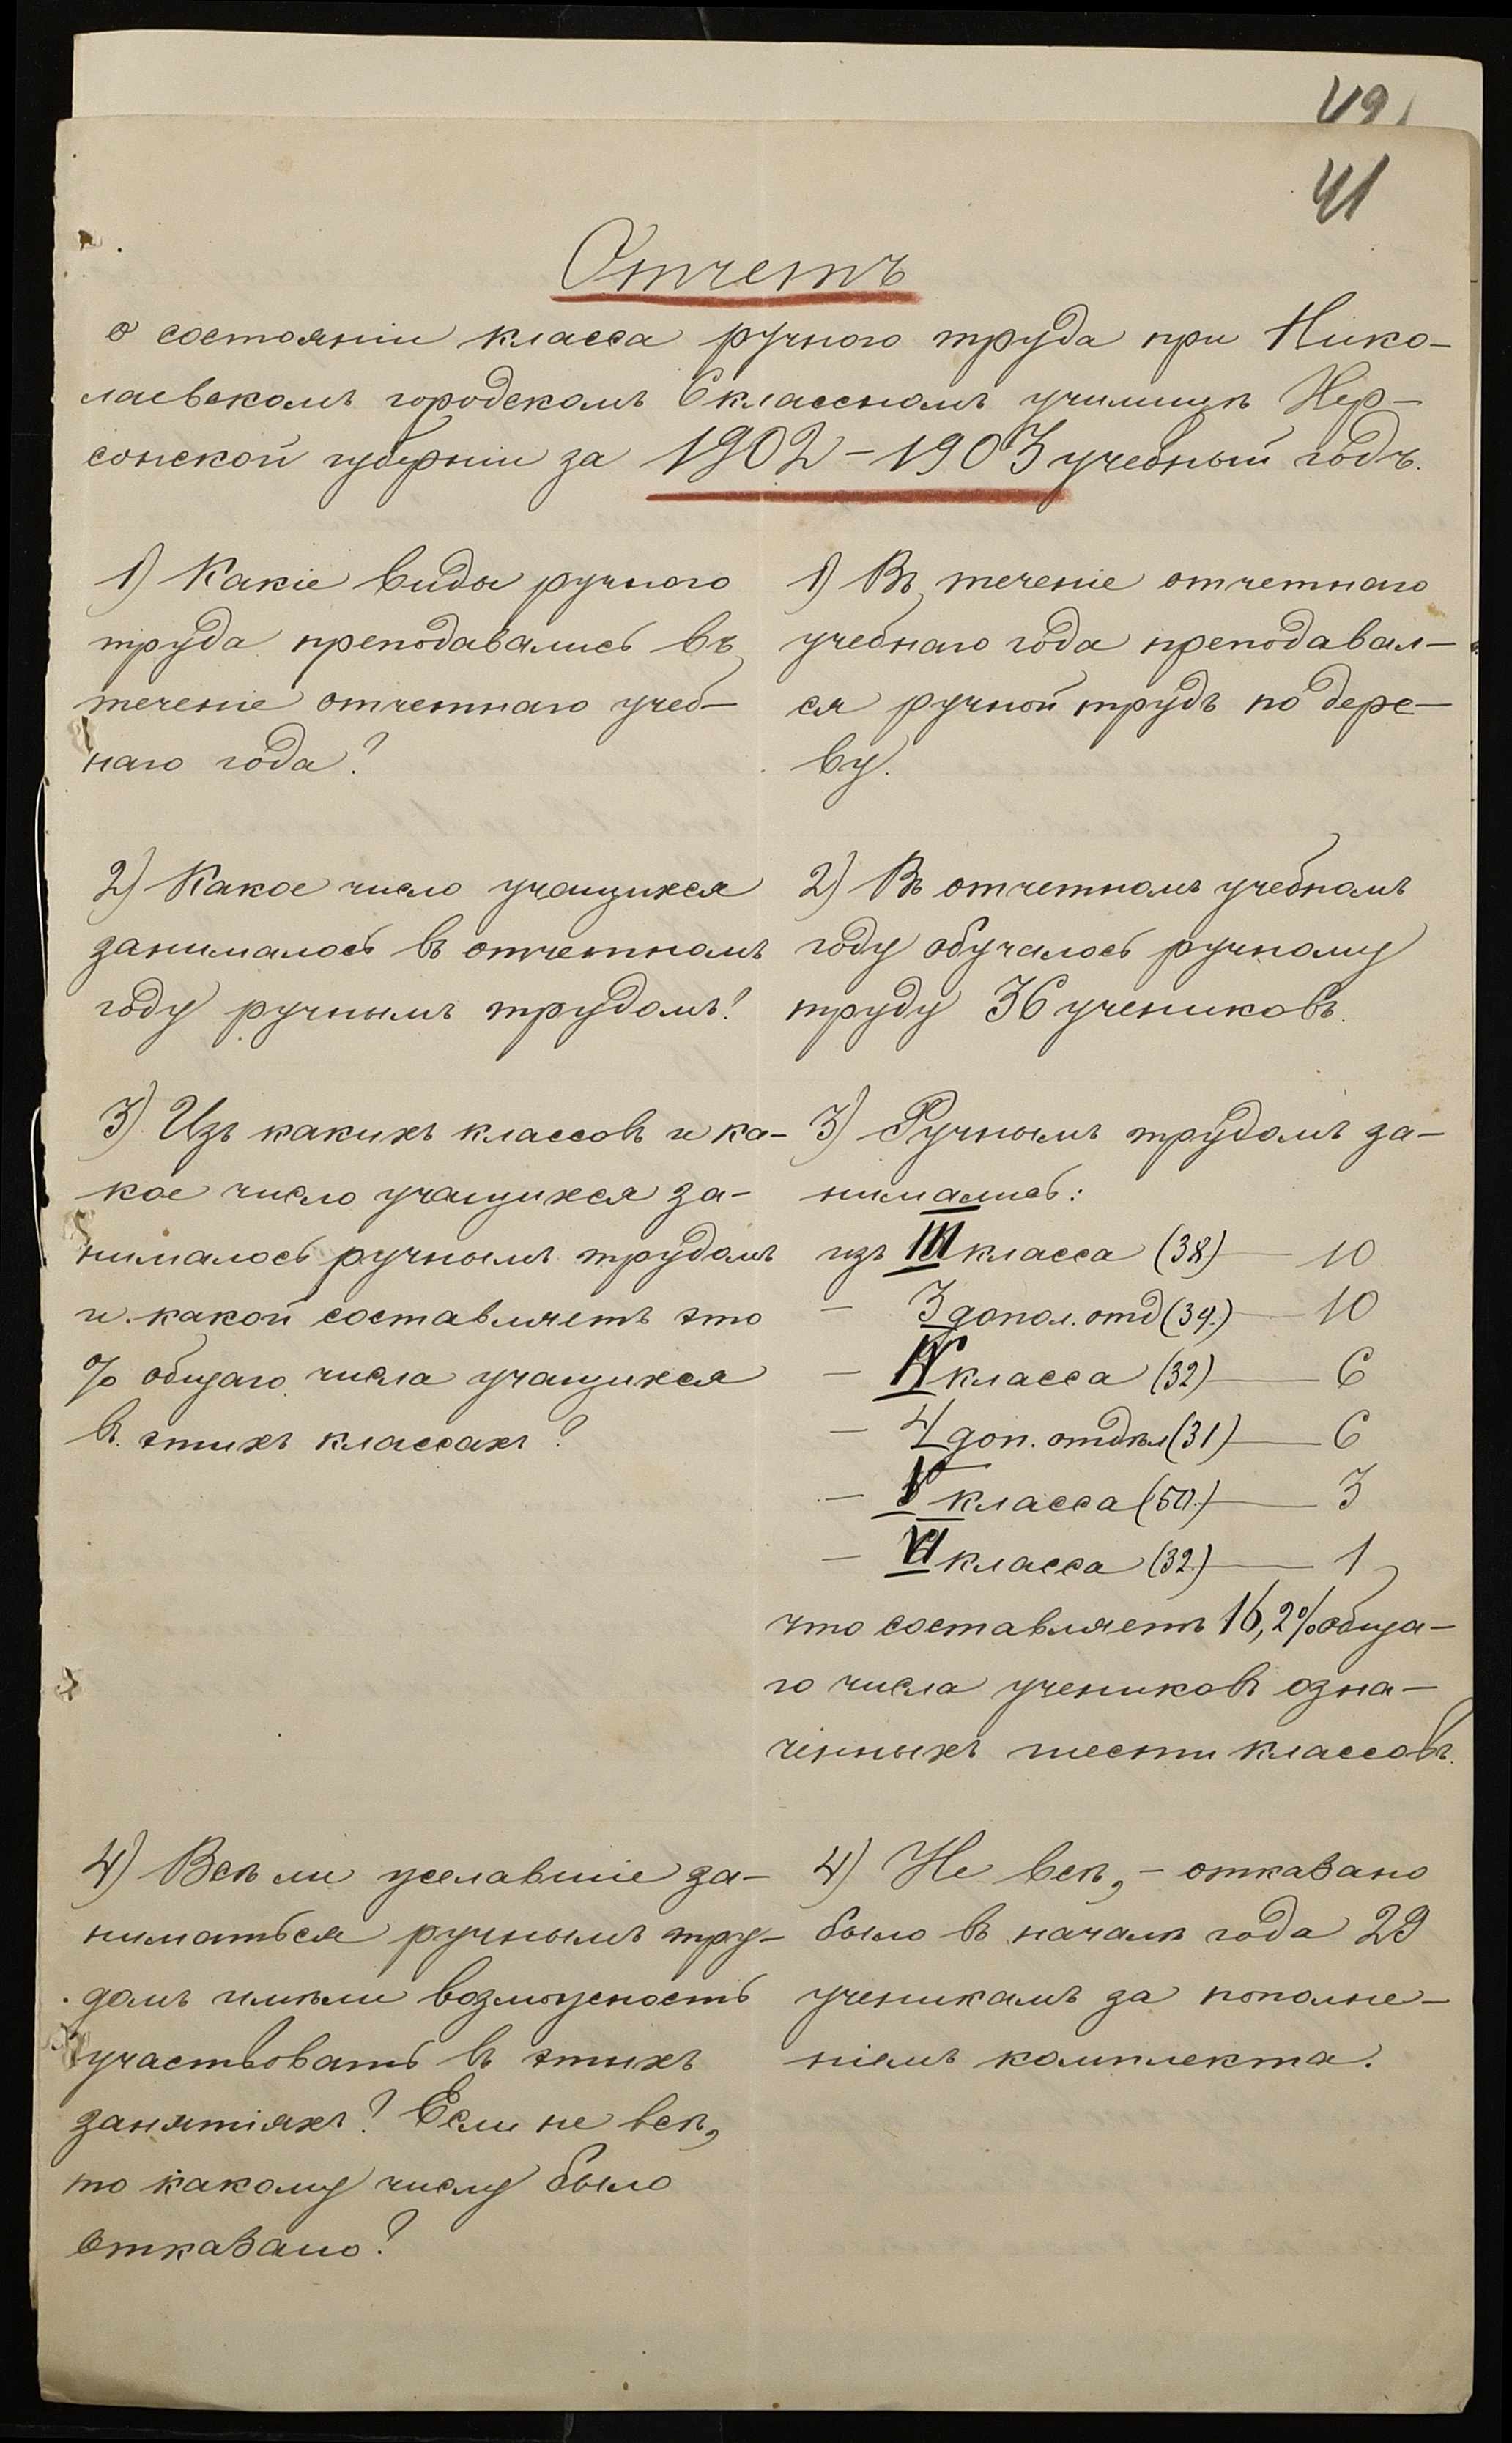 49
41
Отчетъ
о состоянiи класса ручного труда при Нико-
лаевскомъ городскомъ 6классномъ училищѣ Хер-
сонской губернiи за 1902-1903 учебный годъ.
1) Какiе виды ручного
труда преподавались въ
теченiе отчетнаго учеб-
наго года?
1) Въ теченiе отчетнаго
учебнаго года преподавал-
ся ручной трудъ по дере-
ву.
2) Какое число учащихся
занималось въ отчетномъ
году ручнымъ трудомъ?
2) Въ отчетномъ учебномъ
году обучалось ручному
труду 36 учениковъ.
3) Изъ какихъ классовъ и ка-
кое число учащихся за-
нималось ручнымъ трудомъ
и какой составляетъ это
% общаго числа учащихся
въ этихъ классахъ?
3) Ручнымъ трудомъ за-
нимались:
изъ III класса (38) — 10
— 3 допол. отд (39.) — 10
— IV класса (32) — 6
— 4 доп. отдѣл (31) — 6
— V класса (50.) — 3
— VI класса (32.) — 1
что составляетъ 16,2% обща-
го числа учениковъ озна-
ченныхъ шести классовъ.
4) Всѣ ли желавшiе за-
ниматься ручнымъ тру-
домъ имѣли возможность
участвовать въ этихъ
занятiяхъ? Если не всѣ,
то какому числу было
отказано?
4) Не всѣ, - отказано
было въ началѣ года 29
ученикамъ за пополне-
нiемъ комплекта.